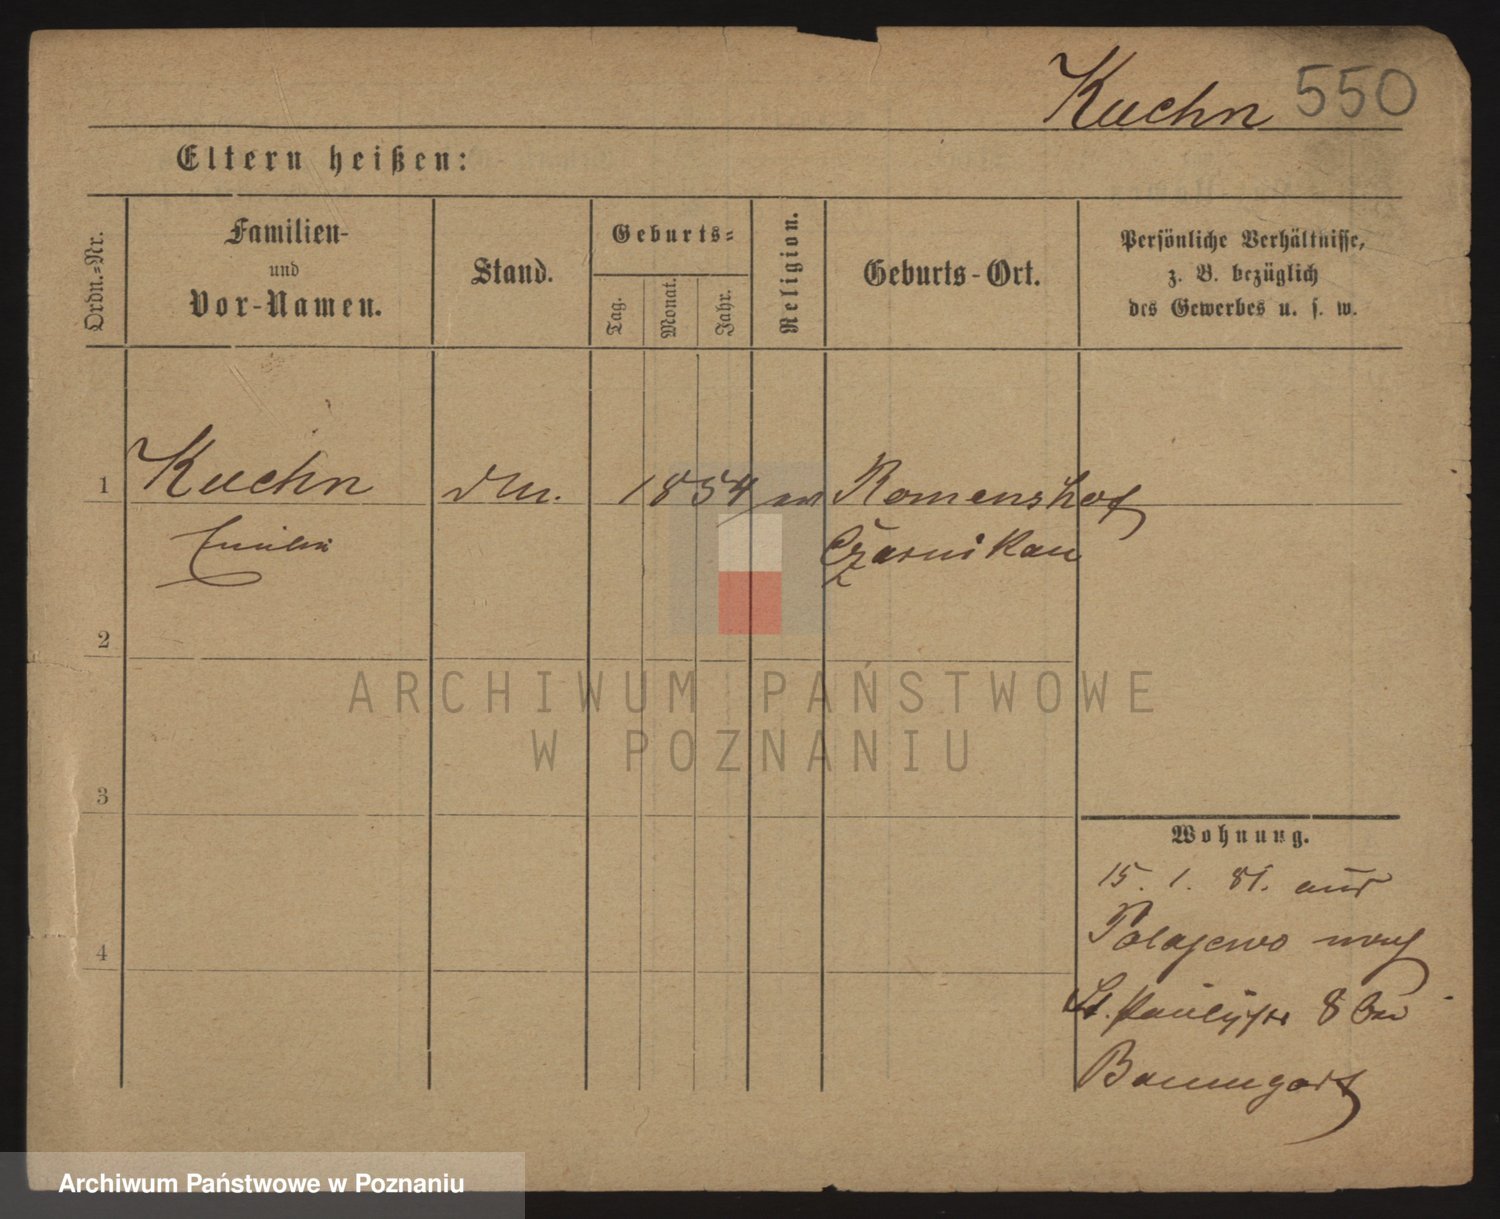 Kuehn 550
Eltern heißen:
Ordn.-Nr.
Familien-
und
Vor-Namen.
Stand.
Geburts-
Tag.
Monat.
Jahr.
Religion.
Geburts-Ort.
Persönliche Verhältnisse,
z. B. bezüglich
des Gewerbes u. s. w.
1 Kuehn 1854 Romenshof
Emilie Czarnikau
2
3
4
Wohnung.
15. 1. 81. aus
Polajewo nach
St. Paulistr 8 bei
Baumgart
ARCHIWUM PAŃSTWOWE
W POZNANIU
Archiwum Państwowe w Poznaniu